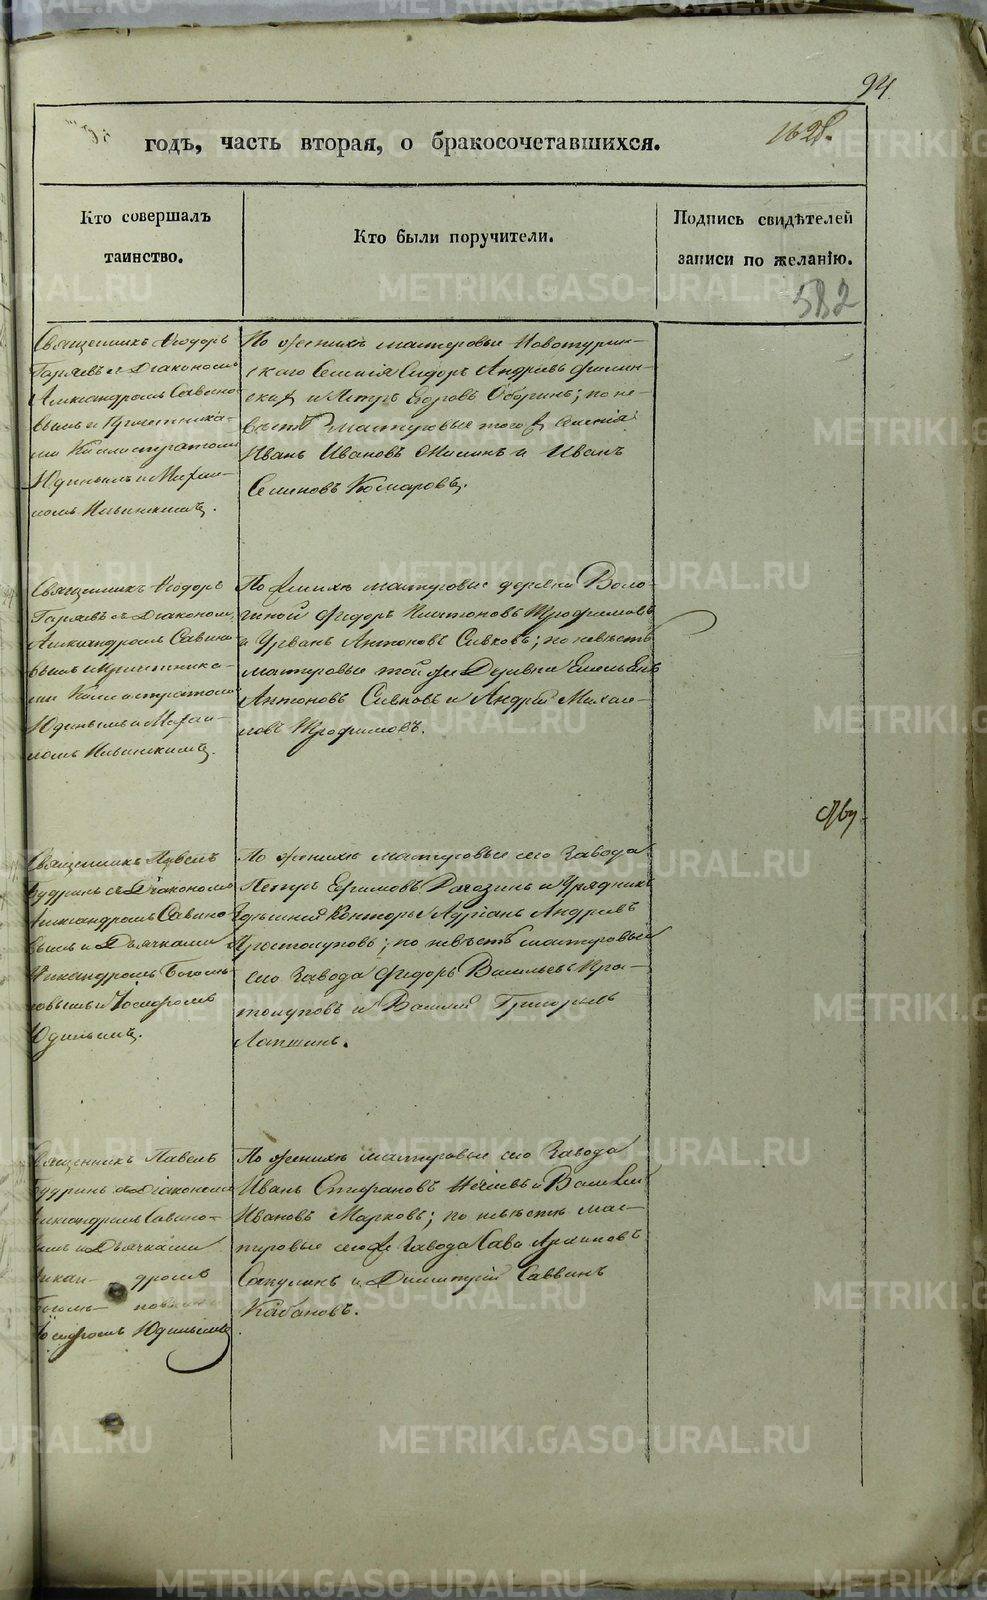 94.
годъ, часть вторая, о бракосочетавшихся.
Кто совершалъ
таинство.
Кто были поручители.
Подпись свидѣтелей
записи по желанію.
582
Священникъ Ѳеодоръ
Гаряевъ съ Діакономъ
Александромъ Савино-
вымъ и Причетника-
ми Каллистратомъ
Юдинымъ и Михаи-
ломъ Ильинскимъ.
По женихѣ мастеровые Новотурин-
скаго Селенія Сидоръ Андреевъ
и Петръ Егоровъ Оборинъ; по не-
вѣстѣ мастеровые того же Селенія
Иванъ Ивановъ и Иванъ
Семеновъ Комаровъ.
Священникъ Ѳеодоръ
Гаряевъ съ Діакономъ
Александромъ Савино-
вымъ и Причетника-
ми Каллистратомъ
Юдинымъ и Михаи-
ломъ Ильинскимъ.
По женихѣ мастеровые деревни Воло-
гиной Ѳедоръ Платоновъ Трофимовъ
и Антоновъ Сивковъ; по невѣстѣ
мастеровые той же Деревни Емельянъ
Антоновъ Сивковъ и Андрей Михаи-
ловъ Трофимовъ.
Священникъ Павелъ
Кудринъ съ Діакономъ
Александромъ Савино-
вымъ и Дьячками
Никандромъ
и
Юдинымъ.
По женихѣ мастеровые сего Завода
Петръ Ефимовъ Рагозинъ и Урядникъ
Здѣшней Конторы Адріанъ Андреевъ
Простолуповъ; по невѣстѣ мастеровые
сего Завода Ѳедоръ Васильевъ Прос-
толуповъ и Василій Григорьевъ
Лапшинъ.
Священникъ Павелъ
Кудринъ съ Діакономъ
Александромъ Савино-
вымъ и Дьячками
Никан- дромъ
Юдинымъ
По женихѣ мастеровые сего Завода
Иванъ Стефановъ и Василій
Ивановъ Марковъ; по невѣстѣ мас-
теровые сего же Завода Сава
и Димитрій Саввинъ
Кабановъ.
METRIKI.GASO-URAL.RU